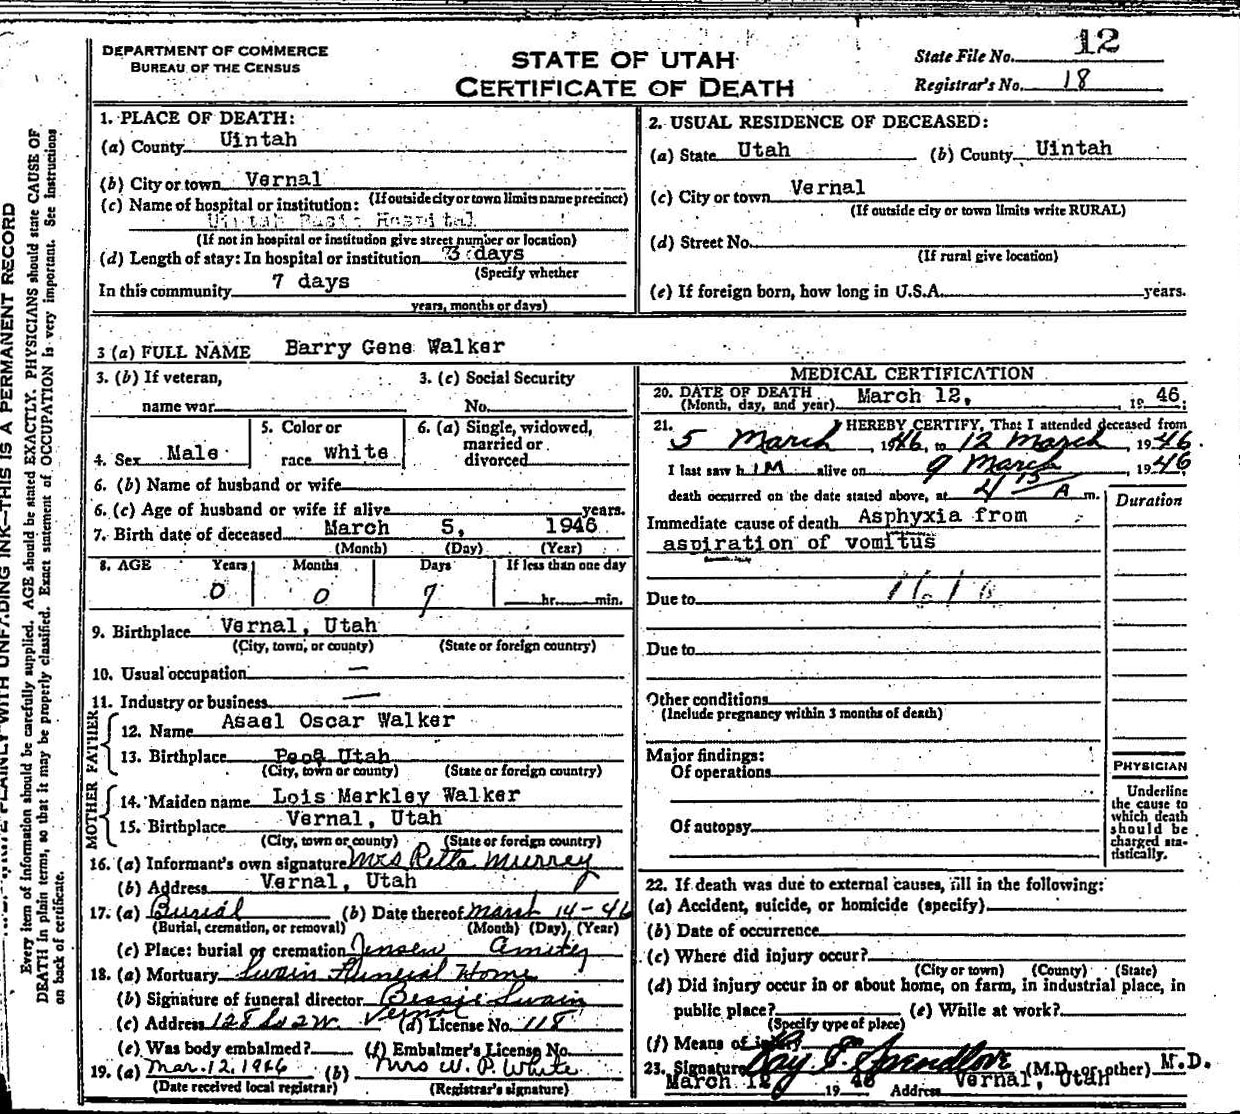 DEPARTMENT OF COMMERCE
BUREAU OF THE CENSUS
STATE OF UTAH
CERTIFICATE OF DEATH
State File No. 12
Registrar's No. 18
1. PLACE OF DEATH:
(a) County Uintah
(b) City or town Vernal
(If outside city or town limits name precinct)
(c) Name of hospital or institution:
Uintah Basin Hospital
(If not in hospital or institution give street number or location)
(d) Length of stay: In hospital or institution 3 days
(Specify whether
In this community 7 days
years, months or days)
2. USUAL RESIDENCE OF DECEASED:
(a) State Utah (b) County Uintah
(c) City or town Vernal
(If outside city or town limits write RURAL)
(d) Street No.
(If rural give location)
(e) If foreign born, how long in U.S.A. years.
3 (a) FULL NAME Barry Gene Walker
3. (b) If veteran,
name war
3. (c) Social Security
No.
4. Sex Male
5. Color or
race white
6. (a) Single, widowed,
married or
divorced
6. (b) Name of husband or wife
6. (c) Age of husband or wife if alive years.
7. Birth date of deceased March 5, 1946
(Month) (Day) (Year)
8. AGE Years Months Days If less than one day
0 0 7 hr. min.
9. Birthplace Vernal, Utah
(City, town, or county) (State or foreign country)
10. Usual occupation —
11. Industry or business —
FATHER
12. Name Asael Oscar Walker
13. Birthplace Peoa Utah
(City, town or county) (State or foreign country)
MOTHER
14. Maiden name Lois Merkley Walker
15. Birthplace Vernal, Utah
(City, town or county) (State or foreign country)
16. (a) Informant's own signature Mrs Retta Murrey
(b) Address Vernal, Utah
17. (a) Burial (b) Date thereof March 14-46
(Burial, cremation, or removal) (Month) (Day), (Year)
(c) Place: burial or cremation Jensen
18. (a) Mortuary Swain Funeral Home
(b) Signature of funeral director Bessie Swain
(c) Address 128 So 2 W. Vernal (d) License No. 118
(e) Was body embalmed? (f) Embalmer's License No.
19. (a) Mar. 12, 1946 (b) Mrs W. P. White
(Date received local registrar) (Registrar's signature)
MEDICAL CERTIFICATION
20. DATE OF DEATH
(Month, day, and year) March 12, 19 46.
21. I HEREBY CERTIFY, That I attended deceased from
5 March, 1946, to 12 March 1946.
I last saw h IM alive on 9 March, 1946
death occurred on the date stated above, at 4 15 A m.
Duration
Immediate cause of death Asphyxia from
aspiration of vomitus
Due to
Due to
Other conditions
(Include pregnancy within 3 months of death)
Major findings:
Of operations
Of autopsy
PHYSICIAN
Underline
the cause to
which death
should be
charged sta-
tistically.
22. If death was due to external causes, fill in the following:
(a) Accident, suicide, or homicide (specify)
(b) Date of occurrence
(c) Where did injury occur?
(City or town) (County) (State)
(d) Did injury occur in or about home, on farm, in industrial place, in
public place? (e) While at work?
(Specify type of place)
(f) Means of injury
23. Signature Ray E Spendlove (M.D. or other) M.D.
March 12 19 46 Address Vernal, Utah
PLAINLY WITH UNFADING INK—THIS IS A PERMANENT RECORD
Every item of information should be carefully supplied. AGE should be stated EXACTLY. PHYSICIANS should state CAUSE OF
DEATH in plain terms, so that it may be properly classified. Exact statement of OCCUPATION is very important. See instructions
on back of certificate.